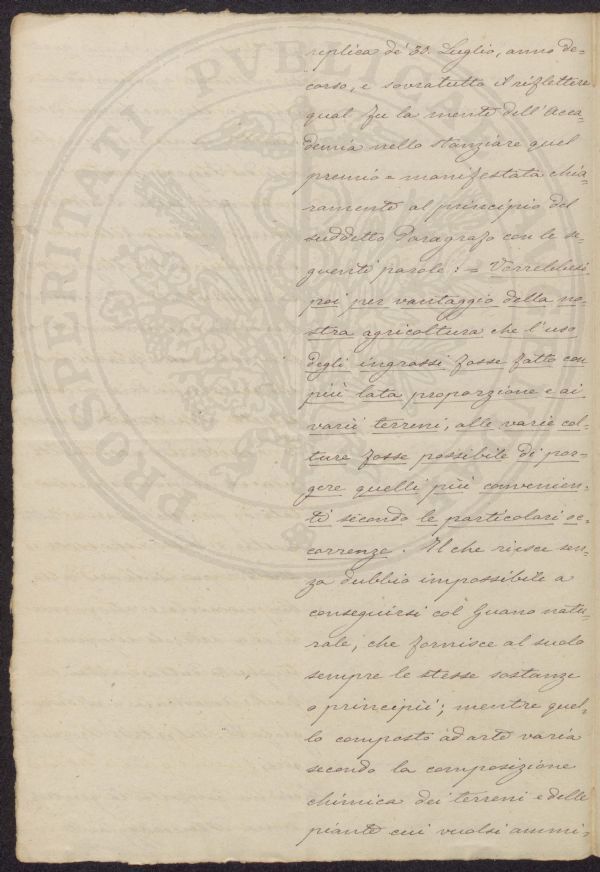 replica de' 30. Luglio, anno de-
corso, e sovratutto il riflettere
qual fu la mente dell'Acca-
demia nello stanziare quel
premio e manifestata chia-
ramente al principio del
suddetto Paragrafo con le se-
guenti parole: = Vorrebbesi
poi per vantaggio della no-
stra agricoltura che l'uso
degli ingrassi fosse fatto con
più lata proporzione e ai
varii terreni, alle varie col-
ture fosse possibile di por-
gere quelli più convenien-
ti secondo le particolari oc-
correnze. Il che riesce sen-
za dubbio impossibile a
conseguirsi col Guano natu-
rale, che fornisce al suolo
sempre le stesse sostanze
o principii; mentre quel-
lo composto ad arte varia
secondo la composizione
chimica dei terreni e delle
piante cui vuolsi ammi-
PROSPERITATI PVBLICAE